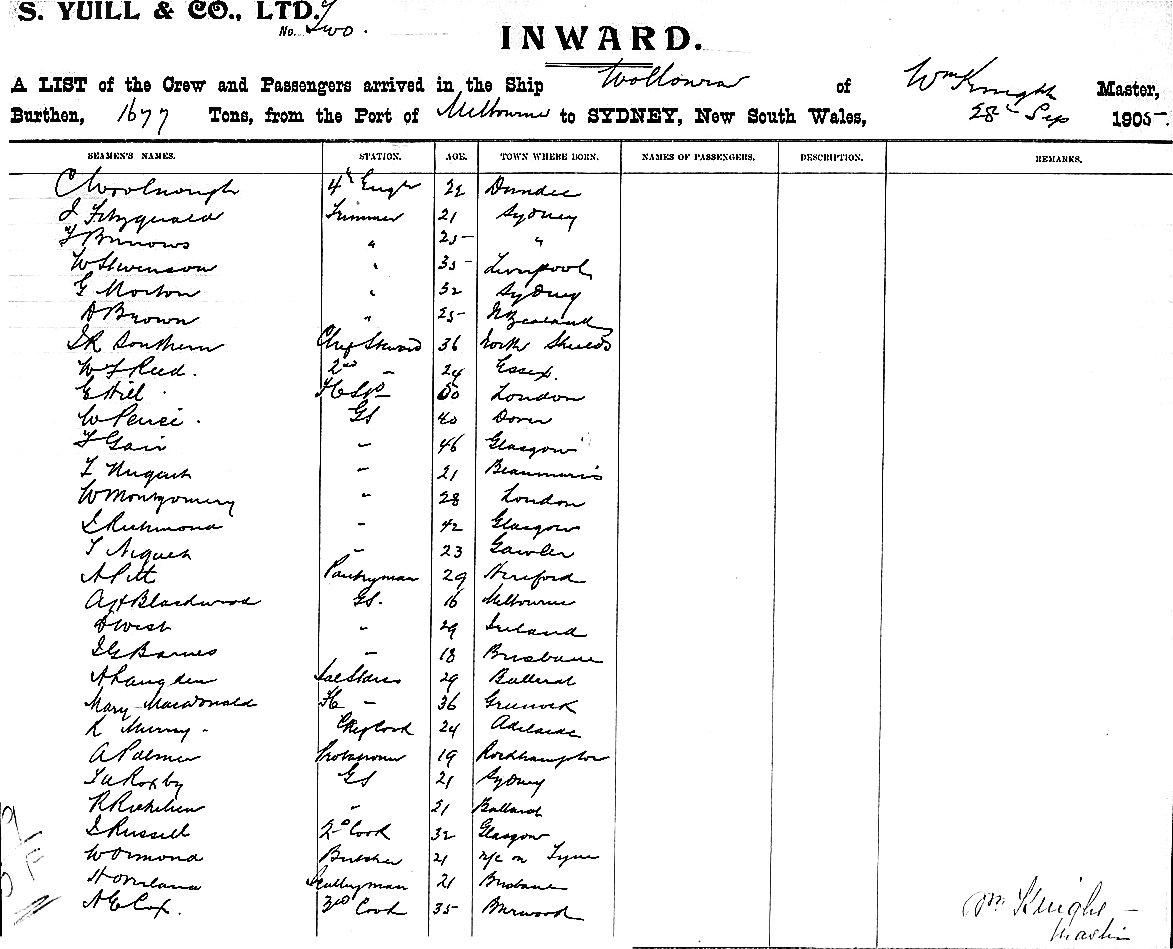 S. YUILL & CO., LTD.
No. Two.
INWARD.
A LIST of the Crew and Passengers arrived in the Ship Wollowra of Wm Knight Master,
Burthen, 1677 Tons, from the Port of Melbourne to SYDNEY, New South Wales, 28th Sep 1905.
SEAMEN'S NAMES. STATION. AGE. TOWN WHERE BORN. NAMES OF PASSENGERS. DESCRIPTION. REMARKS.
C Woolnough 4th Engr 22 Dundee
J Fitzgerald Trimmer 21 Sydney
Burrows " 25 "
W Stevenson " 35 Liverpool
G Morton " 32 Sydney
A Brown " 25 N Zealand
Southern Chief Steward 36 North Shields
W J Reed. 2nd " 24 Essex.
E Hill London
W GS 40 Dover
F Gair " 46 Glasgow
Nugent " 21 Beaumaris
W Montgomery " 28 London
J Richmond " 42 Glasgow
T " 23 Gawler
A Pitt Pantryman 29 Hereford
A H Blackwood GS. 16 Melbourne
D West " 29 Ireland
J G Barnes " 18 Brisbane
A Langden 29 Ballarat
Mary Macdonald " 36 Greenock
R Murray. Chief Cook 24 Adelaide
A Palmer 19 Rockhampton
Roxby GS 21 Sydney
R " 21 Ballarat
J Russell 2nd Cook 32 Glasgow
W Ormond Butcher 21 N/c on Tyne
Sculleryman 21 Brisbane
A E Cox. 3rd Cook 35 Burwood
Wm Knight
Master